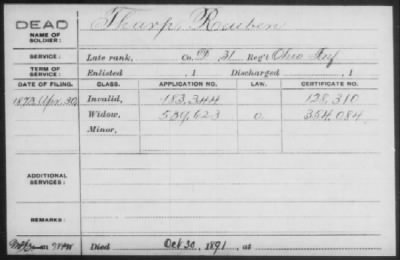 DEAD
NAME OF SOLDIER:
Tharp, Reuben
SERVICE:
Late rank, Co. D 31 Reg't Ohio Inf
TERM OF SERVICE:
Enlisted , 1 Discharged , 1
DATE OF FILING. CLASS. APPLICATION NO. LAW. CERTIFICATE NO.
1873 Apr. 30, Invalid, 183,344 128,310
Widow, 534,623 O. 354,084
Minor,
ADDITIONAL SERVICES:
REMARKS:
Died Oct 30, 1891, at